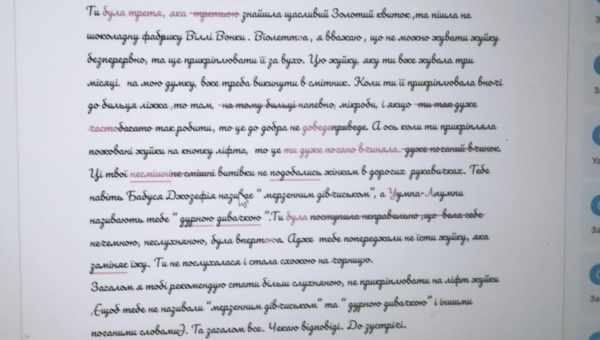 Ти була третя, яка третьою знайшла щасливий Золотий квиток ,та пішла на
шоколадну фабрику Віллі Вонки . Віолетто , я вважаю , що не можно жувати жуйку
безперервно, та ще прикріплювати її за вухо. Цю жуйку, яку ти вже жувала три
місяці на мою думку, вже треба викинути в смітник. Коли ти її прикріплювала вночі
до бильця ліжка ,то там, на тому бильці напевно, мікроби, і якщо ти так дуже
частобагато так робити, то це до добра не доведеприведе. А ось коли ти прикріпляла
пожовані жуйки на кнопку ліфта, то це ти дуже погано вчинила. дуже поганий вчинок.
Ці твої несмішніне смішні витівки не подобались жінкам в дорогих рукавичках. Тебе
навіть Бабуся Джозефія називає " мерзенним дівчиськом", а Уумпа-Лумпи
називають тебе " дурною дивачкою ".Ти була поступила неправильно ,що вела себе
нечемною, неслухняною, була впертою. Адже тебе попереджали не їсти жуйку, яка
заміняє їжу. Ти не послухалася і стала схожою на чорницю.
Загалом я тобі рекомендую стати більш слухняною, не прикріплювати на ліфт жуйки
,(щоб тебе не називали "мерзенним дівчиськом" та " дурною дивачкою" і іншими
поганими словами). Та загалом все. Чекаю відповіді. До зустрічі.